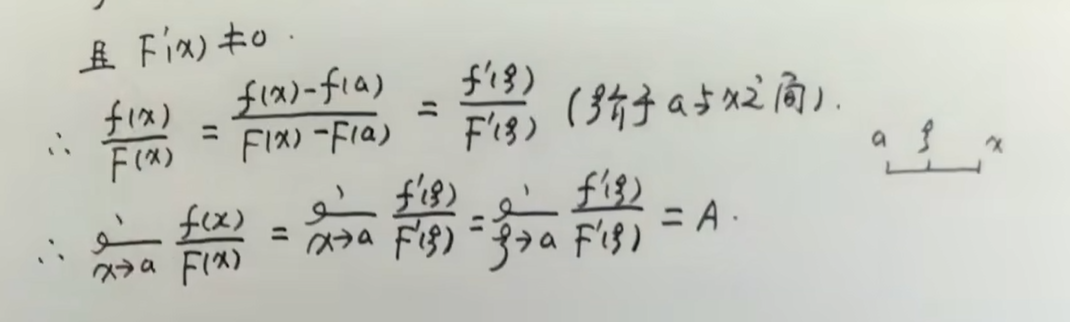 且 F'(x) ≠ 0.
∴ f(x)/F(x) = (f(x)-f(a))/(F(x)-F(a)) = f'(ξ)/F'(ξ) (ξ介于a与x之间).
a ξ x
∴ lim_{x→a} f(x)/F(x) = lim_{x→a} f'(ξ)/F'(ξ) = lim_{ξ→a} f'(ξ)/F'(ξ) = A.